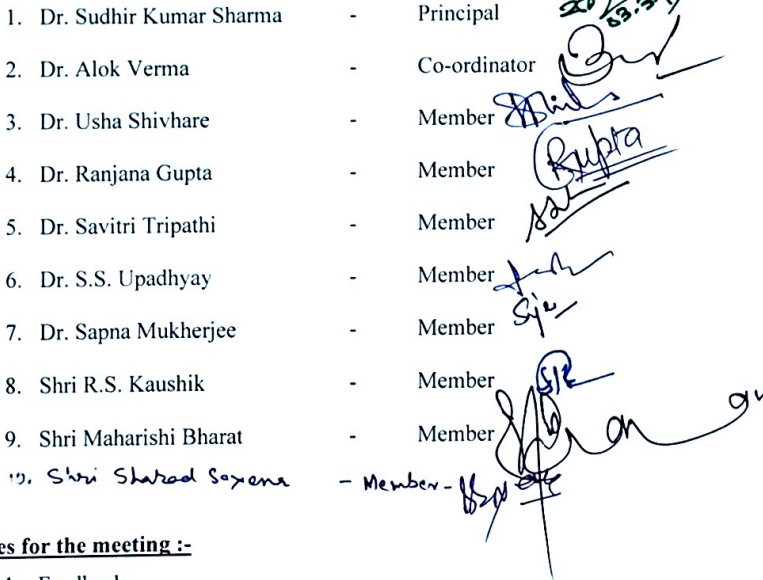 1. Dr. Sudhir Kumar Sharma - Principal
2. Dr. Alok Verma - Co-ordinator
3. Dr. Usha Shivhare - Member
4. Dr. Ranjana Gupta - Member Rupta
5. Dr. Savitri Tripathi - Member
6. Dr. S.S. Upadhyay - Member
7. Dr. Sapna Mukherjee - Member
8. Shri R.S. Kaushik - Member
9. Shri Maharishi Bharat - Member
10. Shri Sharad Saxena - Member -
es for the meeting :-